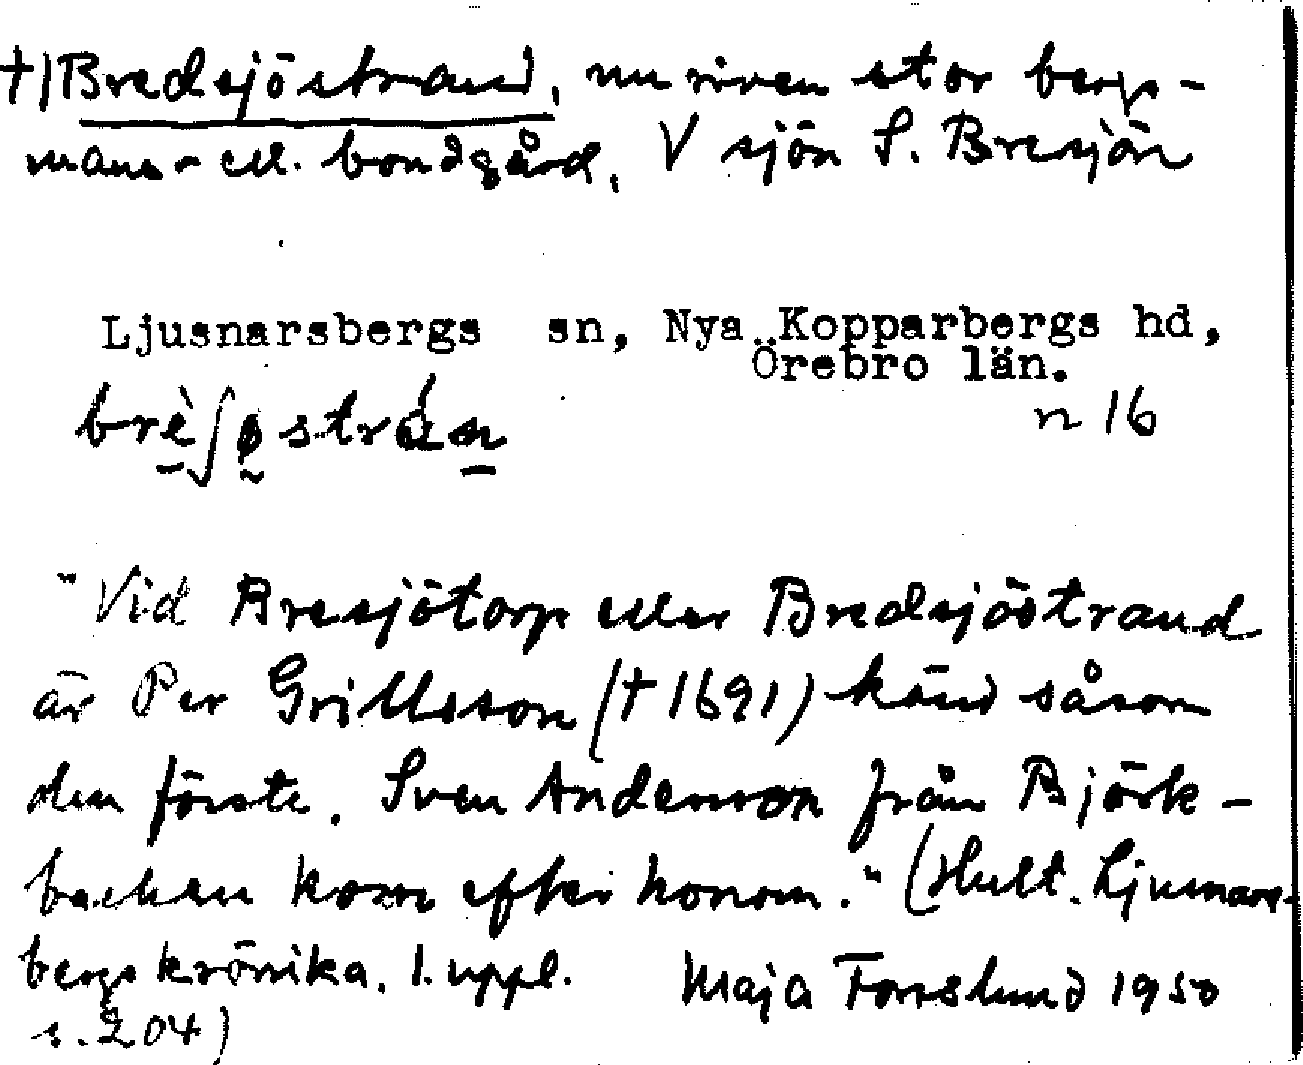 †) Bredsjöstrand, nu riven stor bergs-
mans- ell. bondgård, V sjön S. Bresjön
Ljusnarsbergs sn, Nya Kopparbergs hd,
Örebro län.
n 16
"Vid Bresjötorp eller Bredsjöstrand
är Per Grillsson († 1691) känd såsom
den förste. Sven Andersson från Björk-
backen kom efter honom." (Hult. Ljusnars-
bergs krönika. 1. uppl.
s. 204)
Maja Forsslund 1950